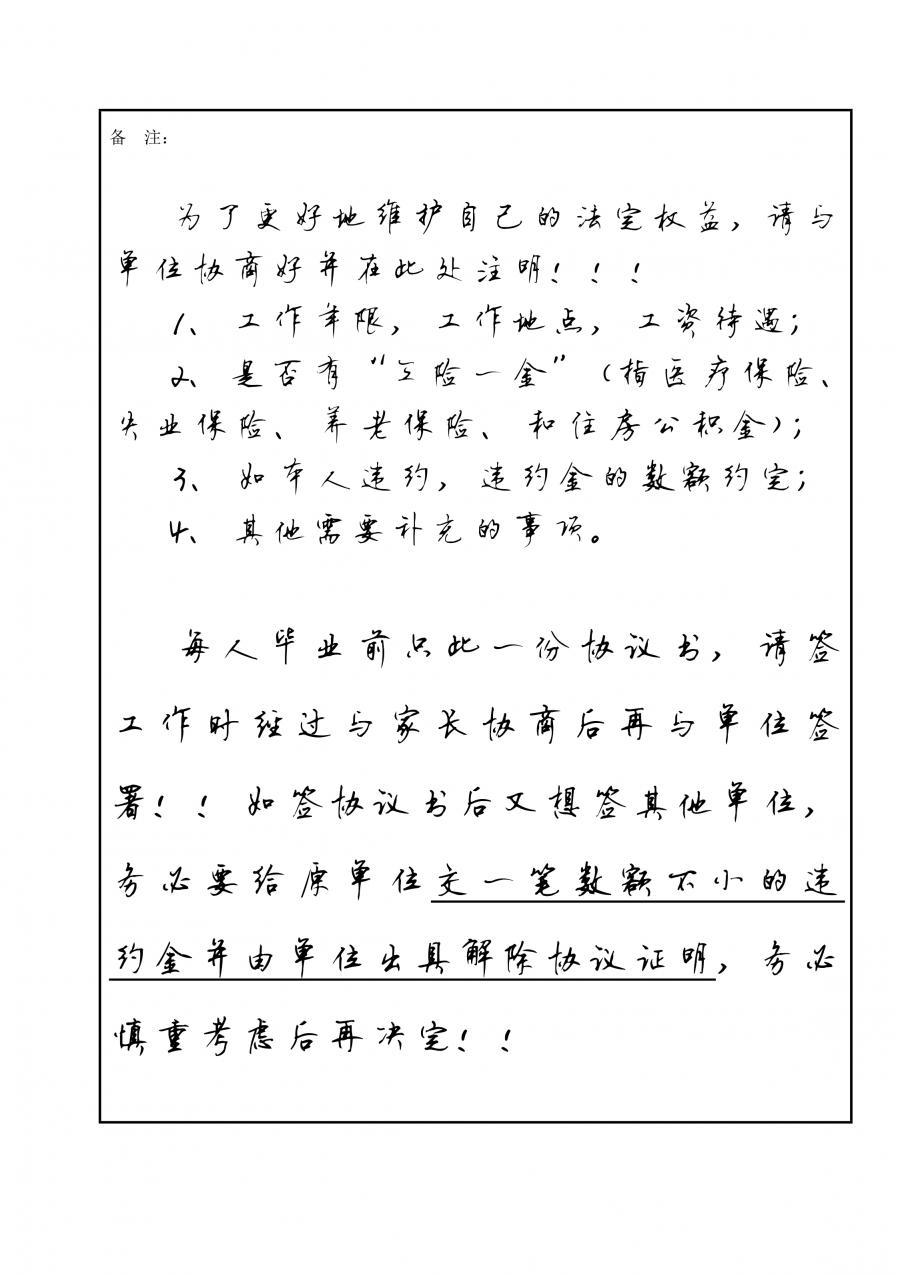 备 注：
为了更好地维护自己的法定权益，请与
单位协商好并在此处注明！！！
1、工作年限，工作地点，工资待遇；
2、是否有“三险一金”（指医疗保险、
失业保险、养老保险、和住房公积金）；
3、如本人违约，违约金的数额约定；
4、其他需要补充的事项。
每人毕业前只此一份协议书，请签
工作时经过与家长协商后再与单位签
署！！如签协议书后又想签其他单位，
务必要给原单位交一笔数额不小的违
约金并由单位出具解除协议证明，务必
慎重考虑后再决定！！